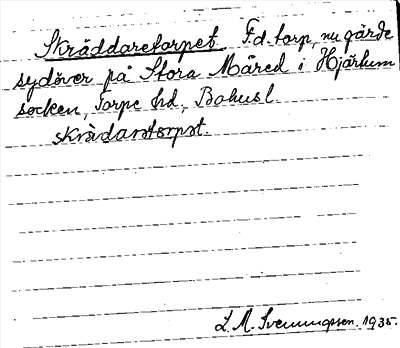 Skräddaretorpet Fd. torp, nu gärde
sydöver på Stora Måred i Hjärtum
socken, Torpe hd, Bohusl
skrädaratorpat.
L. M. Svenungsson. 1935.